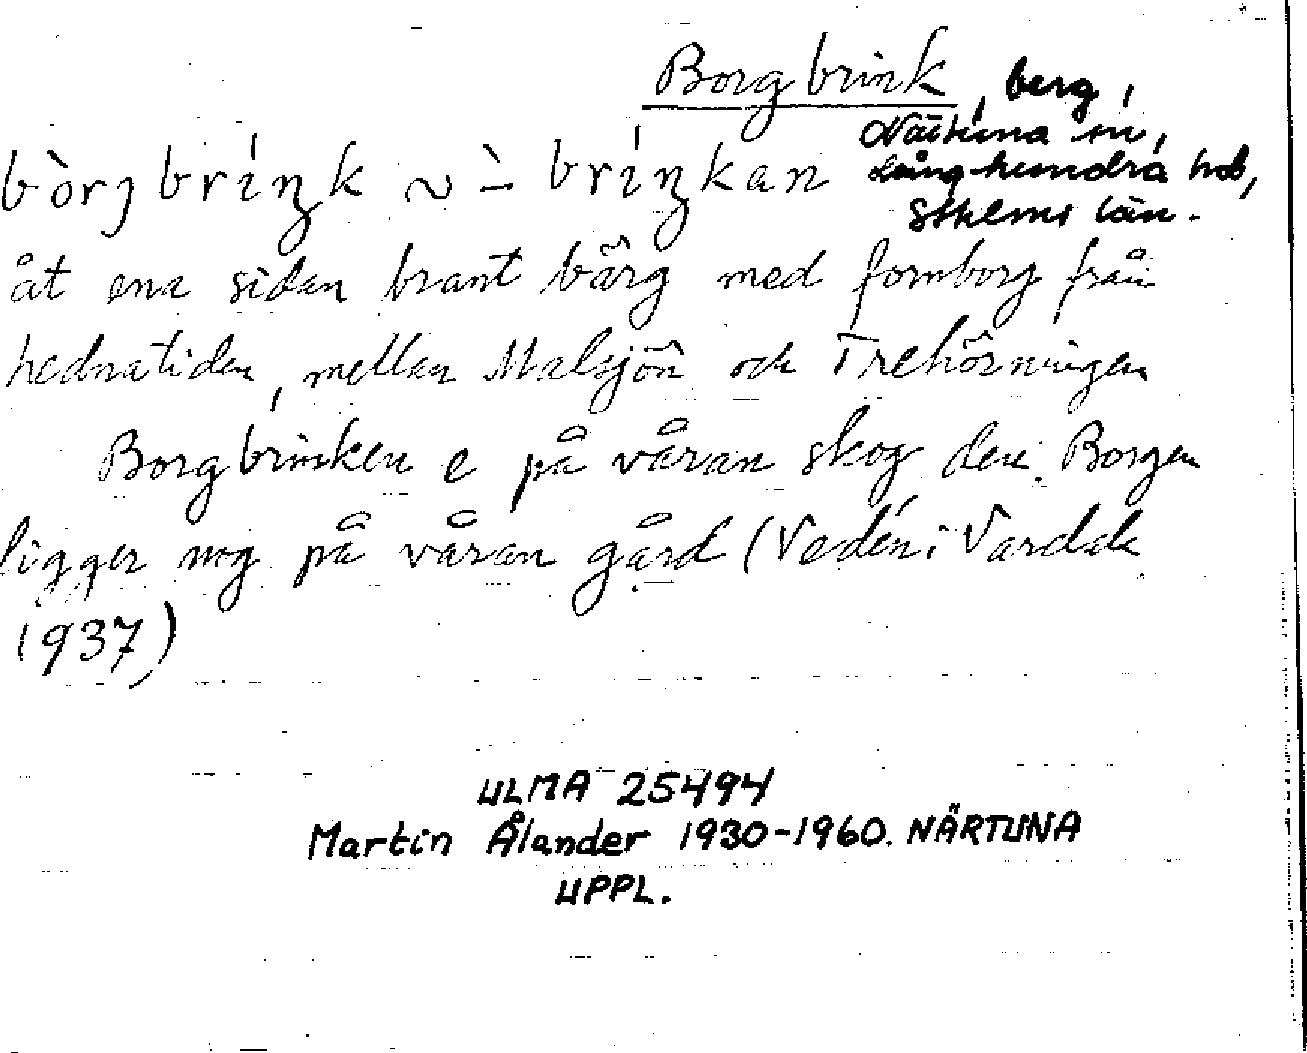 Borgbrink, berg,
Närtuna sn,
Långhundra hd,
Sthlms län.
bòrj bríŋk ~ ̀ – bríŋkan
åt ena sidan brant bärg med fornborg från
hednatiden, mellan Malsjön och Trehörningen
Borgbrinken e på våran skog den. Borgen
ligger nog på våran gård (Vedén i Vardak
1937)
ULMA 25494
Martin Ålander 1930-1960. NÄRTUNA
UPPL.